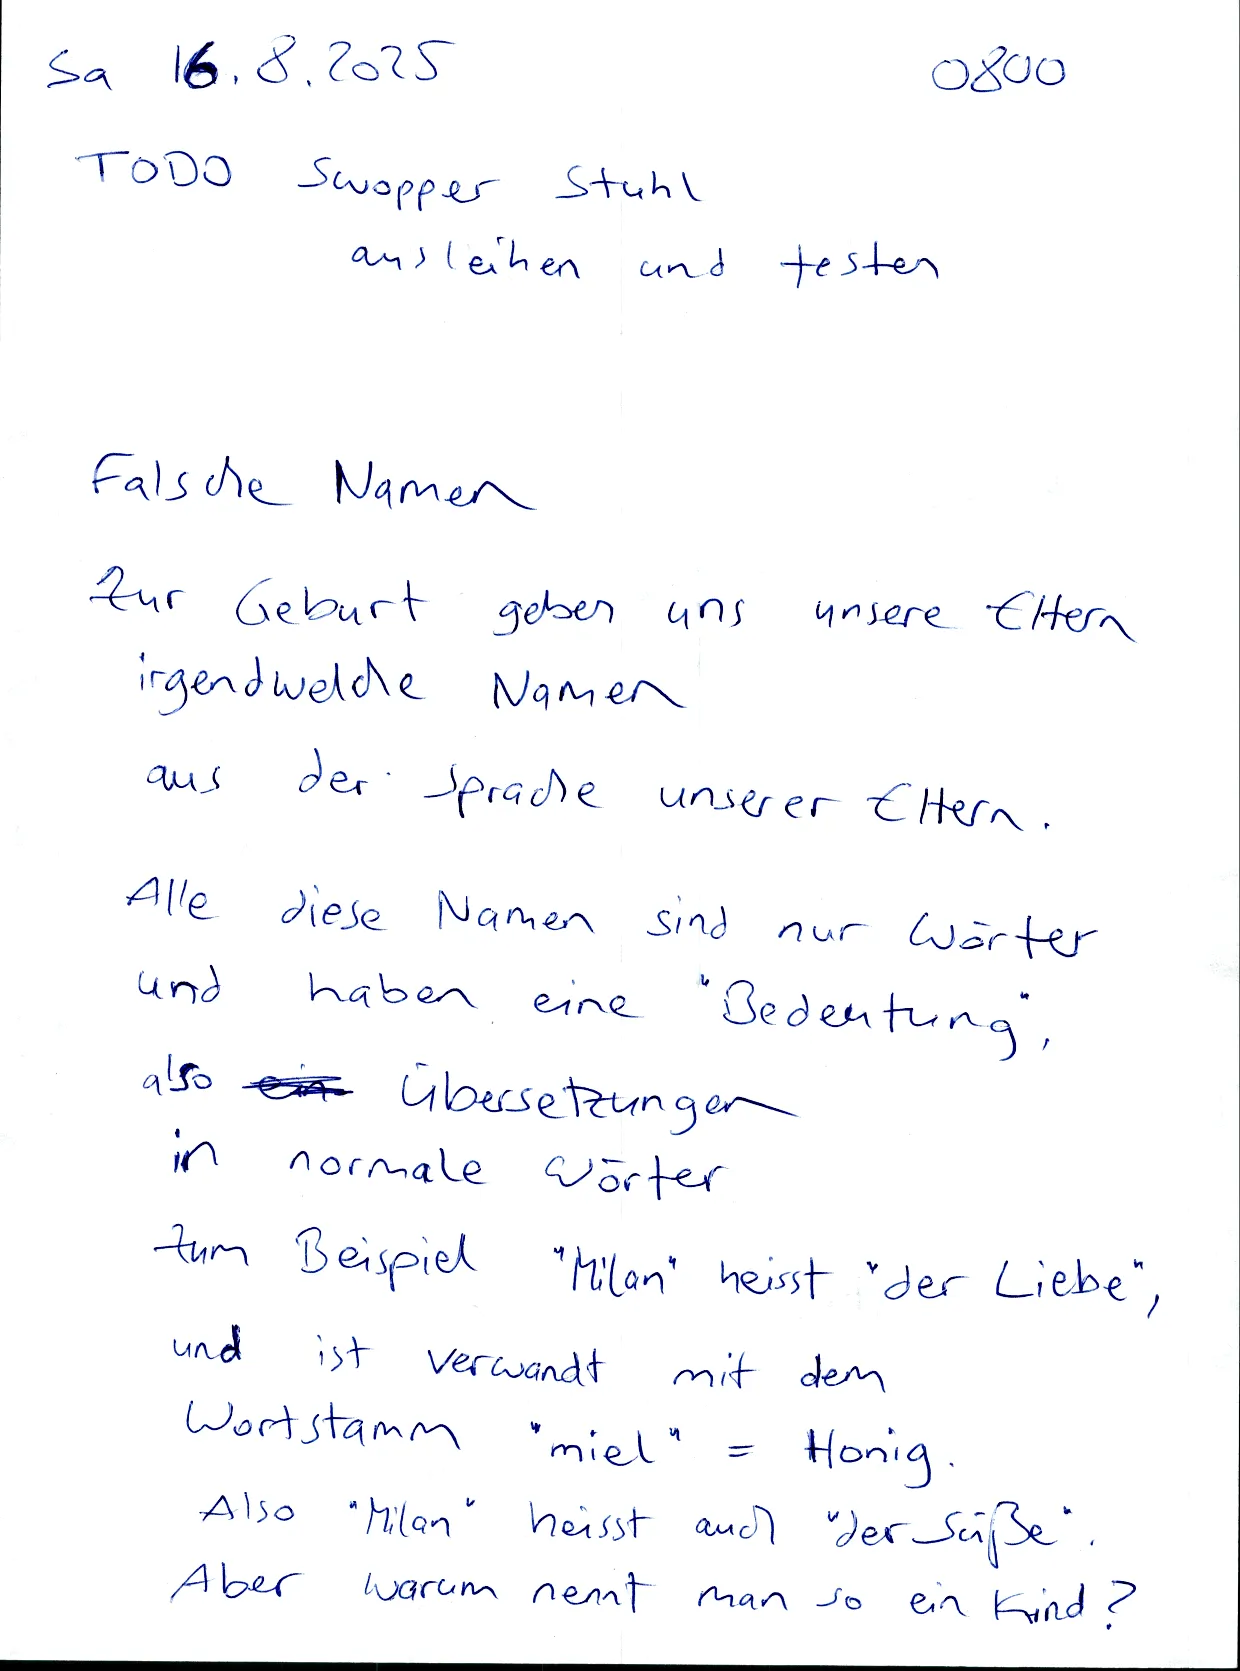 Sa 16.8.2025 0800
TODO Swopper Stuhl
ausleihen und testen
Falsche Namen
Zur Geburt geben uns unsere Eltern
irgendwelche Namen
aus der Sprache unserer Eltern.
Alle diese Namen sind nur Wörter
und haben eine "Bedeutung",
also ein Übersetzungen
in normale Wörter
zum Beispiel "Milan" heisst "der Liebe",
und ist verwandt mit dem
Wortstamm "miel" = Honig.
Also "Milan" heisst auch "der Süße".
Aber warum nennt man so ein Kind?